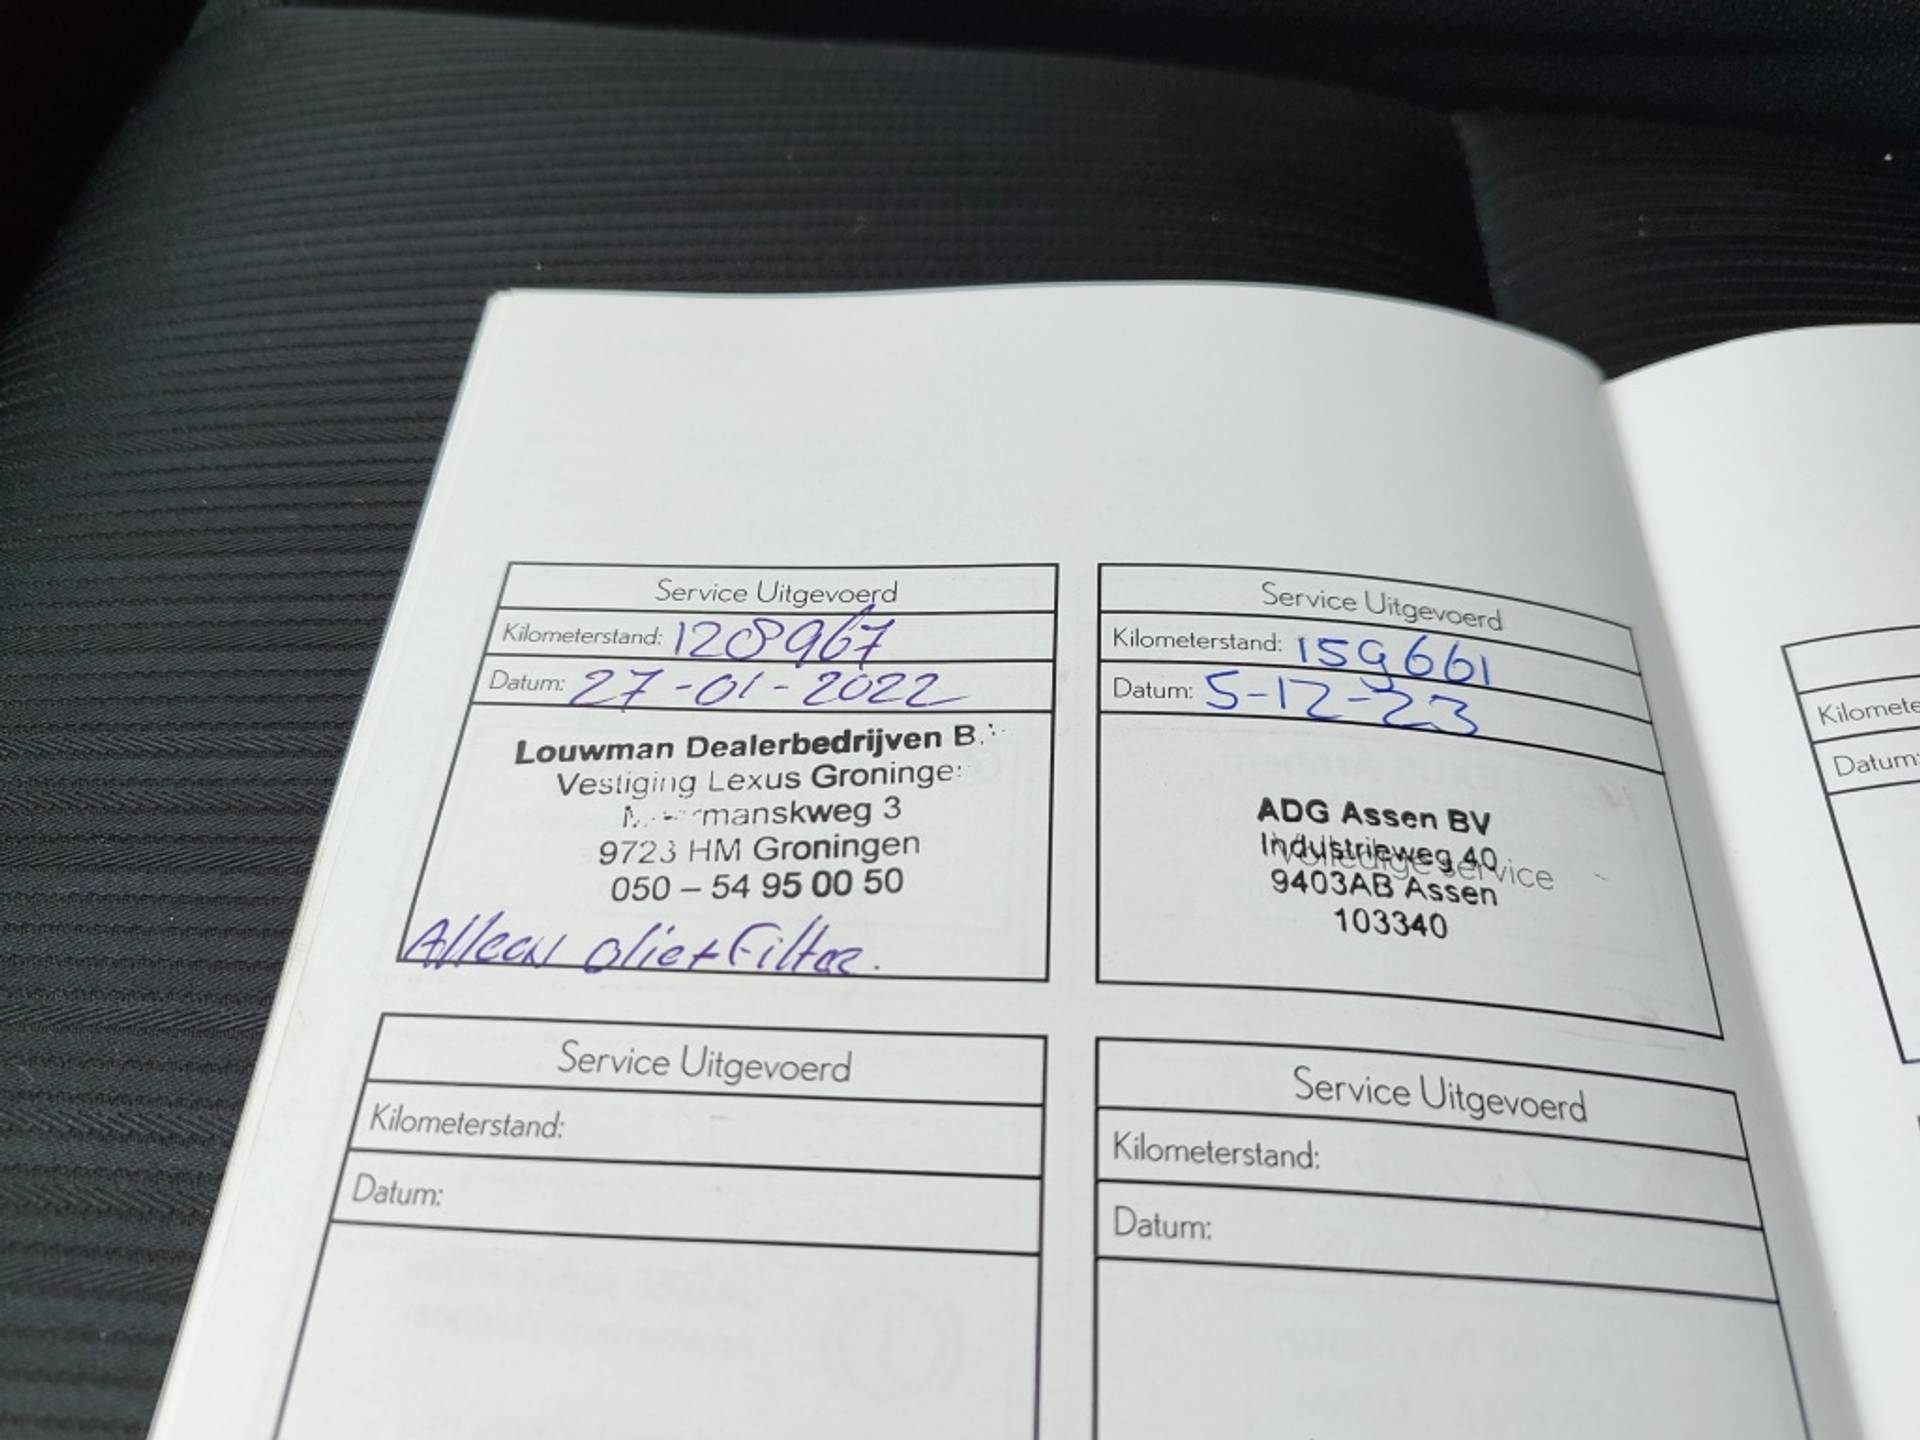 Service Uitgevoerd
Kilometerstand: 128967
Datum: 27-01-2022
Louwman Dealerbedrijven B.
Vestiging Lexus Groninge
manskweg 3
9723 HM Groningen
050 – 54 95 00 50
Alleen olie + Filter.
Service Uitgevoerd
Kilometerstand: 159661
Datum: 5-12-23
ADG Assen BV
Industrieweg 40
Volledige service
9403AB Assen
103340
Service Uitgevoerd
Kilometerstand:
Datum:
Service Uitgevoerd
Kilometerstand:
Datum:
Kilomete
Datum: